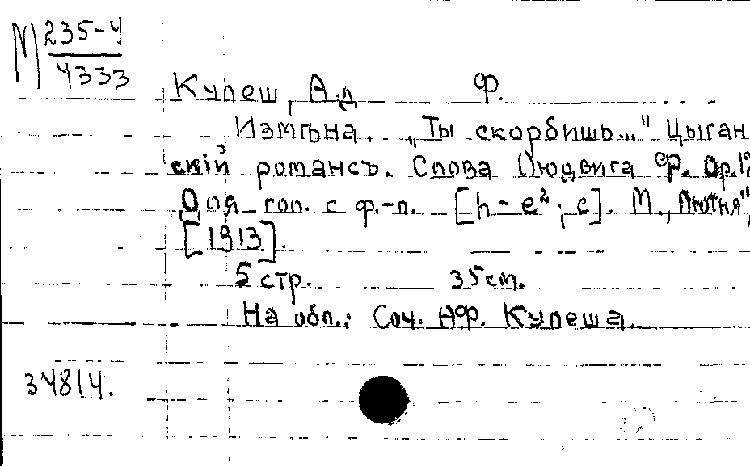 М 235-4
4333
Кулеш, Ад Ф.
Измѣна. „Ты скорбишь..." Цыган
скій романсъ. Слова Людвига Ф. Ор.12
Для гол. с ф.-п. [h-e²; c]. М., „Лютня",
[1913].
5 стр. 35 см.
На обл.: Соч. АФ. Кулеша.
34814.